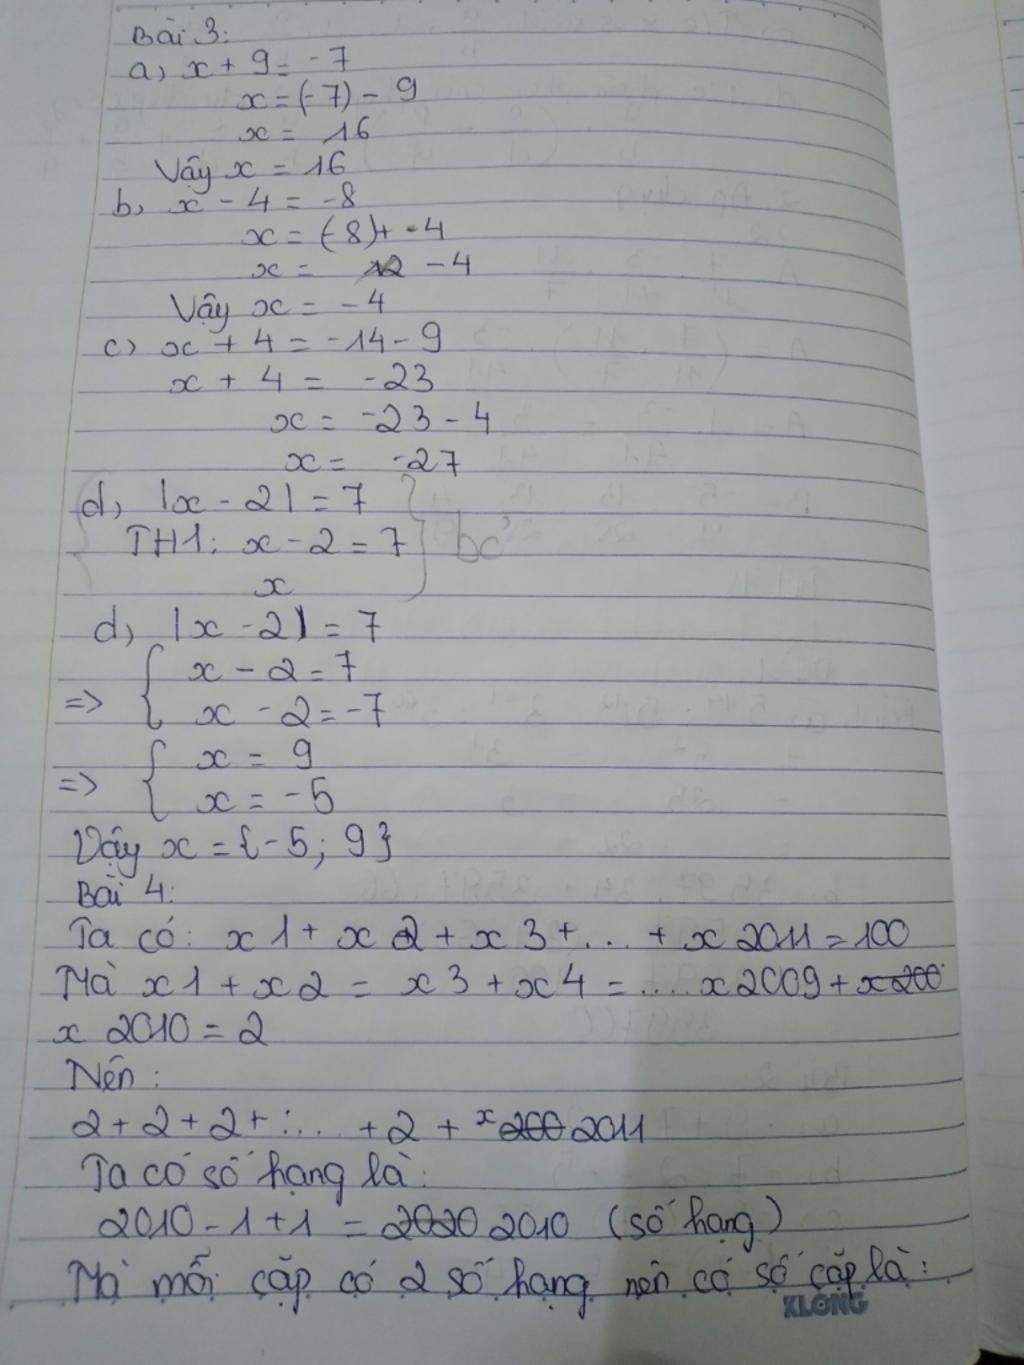 Bài 3:
a, x + 9 = -7
x = (-7) - 9
x = 16
Vậy x = 16
b, x - 4 = -8
x = (-8) + 4
x = -4
Vậy x = -4
c) x + 4 = -14 - 9
x + 4 = -23
x = -23 - 4
x = -27
d, |x - 2| = 7
TH1: x - 2 = 7
bỏ
x
d, |x - 2| = 7
x - 2 = 7
=> { x - 2 = -7
x = 9
=> { x = -5
Vậy x = {-5; 9}
Bài 4:
Ta có: x1 + x2 + x3 + ... + x2011 = 100
Mà x1 + x2 = x3 + x4 = .... x2009 +
x 2010 = 2
Nên:
2 + 2 + 2 + .... + 2 + x 2011
Ta có số hạng là:
2010 - 1 + 1 = 2010 (số hạng)
Mà mỗi cặp có 2 số hạng nên có số cặp là:
XLONG